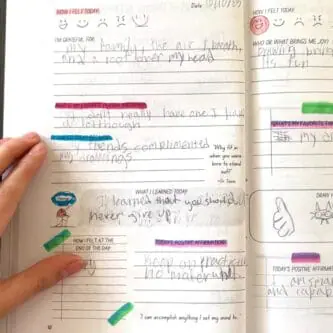 HOW I FELT TODAY:
Date
I'M GRATEFUL FOR:
my family, the air I breath,
and a roof over my head
I don't really have one I have
friends complimented
my drawings
"Why fit in
when you were
born to stand
out?"
WHAT I LEARNED TODAY
I learned that you should
never give up
HOW I FELT AT THE
END OF THE DAY
TODAY'S POSITIVE AFFIRMATION
keep on
no matter
I can accomplish anything I set my mind to.
HOW I FELT TODAY:
WHO OR WHAT BRINGS ME JOY
drawing
its fun
WHAT'S MY FAVORITE
my
DRAW
TODAY'S POSITIVE AFFIRMAT
I am
and capab